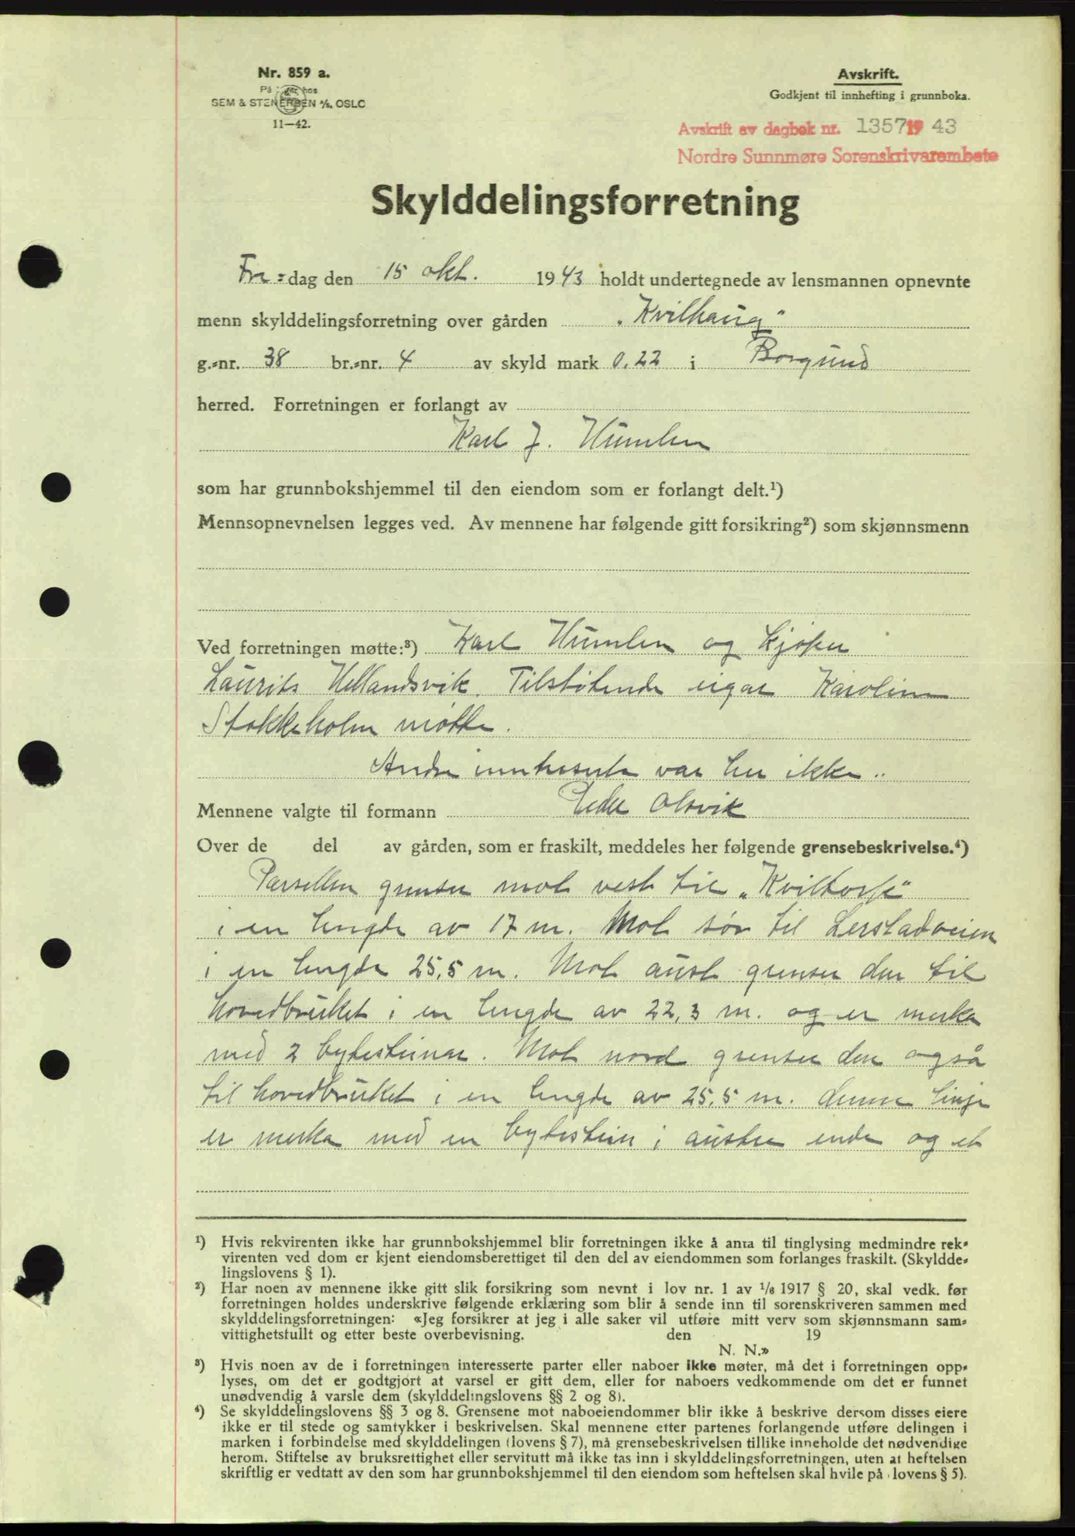 Nr. 859 a.
På lager hos
SEM & STENERSEN A/S, OSLO
11—42.
Avskrift.
Godkjent til innhefting i grunnboka.
Avskrift av dagbok nr. 1357 19 43
Nordre Sunnmøre Sorenskrivarembete
Skylddelingsforretning
Fre-dag den 15 okt. 1943 holdt undertegnede av lensmannen opnevnte
menn skylddelingsforretning over gården „Kvilhaug"
g.-nr. 38 br.-nr. 4 av skyld mark 0.22 i Borgund
herred. Forretningen er forlangt av
Karl J. Humlen
som har grunnbokshjemmel til den eiendom som er forlangt delt.¹)
Mennsopnevnelsen legges ved. Av mennene har følgende gitt forsikring²) som skjønnsmenn
Ved forretningen møtte:³) Karl Humlen og kjøper
Laurits Hellandsvik. Tilstøtende eigar Karoline
Stokkeholm møtte.
Andre interesserte var her ikke..
Mennene valgte til formann Peder Olsvik
Over de del av gården, som er fraskilt, meddeles her følgende grensebeskrivelse.⁴)
Parsellen grenser mot vest til „Kviltorp"
i en lengde av 17 m. Mot sør til Lerstadveien
i en lengde 25,5 m. Mot aust grenser den til
hovedbruket i en lengde av 22,3 m. og er merka
med 2 bytesteinar. Mot nord grenser den også
til hovedbruket i en lengde av 25,5 m. denne linje
er merka med en bytestein i austre ende og et
¹) Hvis rekvirenten ikke har grunnbokshjemmel blir forretningen ikke å anta til tinglysing medmindre rek-
virenten ved dom er kjent eiendomsberettiget til den del av eiendommen som forlanges fraskilt. (Skyldde-
lingslovens § 1).
²) Har noen av mennene ikke gitt slik forsikring som nevnt i lov nr. 1 av 1/6 1917 § 20, skal vedk. før
forretningen holdes underskrive følgende erklæring som blir å sende inn til sorenskriveren sammen med
skylddelingsforretningen: «Jeg forsikrer at jeg i alle saker vil utføre mitt verv som skjønnsmann sam-
vittighetsfullt og etter beste overbevisning. den 19
N. N.»
³) Hvis noen av de i forretningen interesserte parter eller naboer ikke møter, må det i forretningen opp-
lyses, om det er godtgjort at varsel er gitt dem, eller for naboers vedkommende om det er funnet
unødvendig å varsle dem (skylddelingslovens §§ 2 og 8).
⁴) Se skylddelingslovens §§ 3 og 8. Grensene mot naboeiendommer blir ikke å beskrive dersom disses eiere
ikke er til stede og samtykker i beskrivelsen. Skal mennene etter partenes forlangende utføre delingen i
marken i forbindelse med skylddelingen (lovens § 7), må grensebeskrivelsen tillike inneholde det nødvendige
herom. Stiftelse av bruksrettighet eller servitutt må ikke tas inn i skylddelingsforretningen, uten at heftelsen
skriftlig er vedtatt av den som har grunnbokshjemmel til den eiendom som heftelsen skal hvile på (lovens § 5).